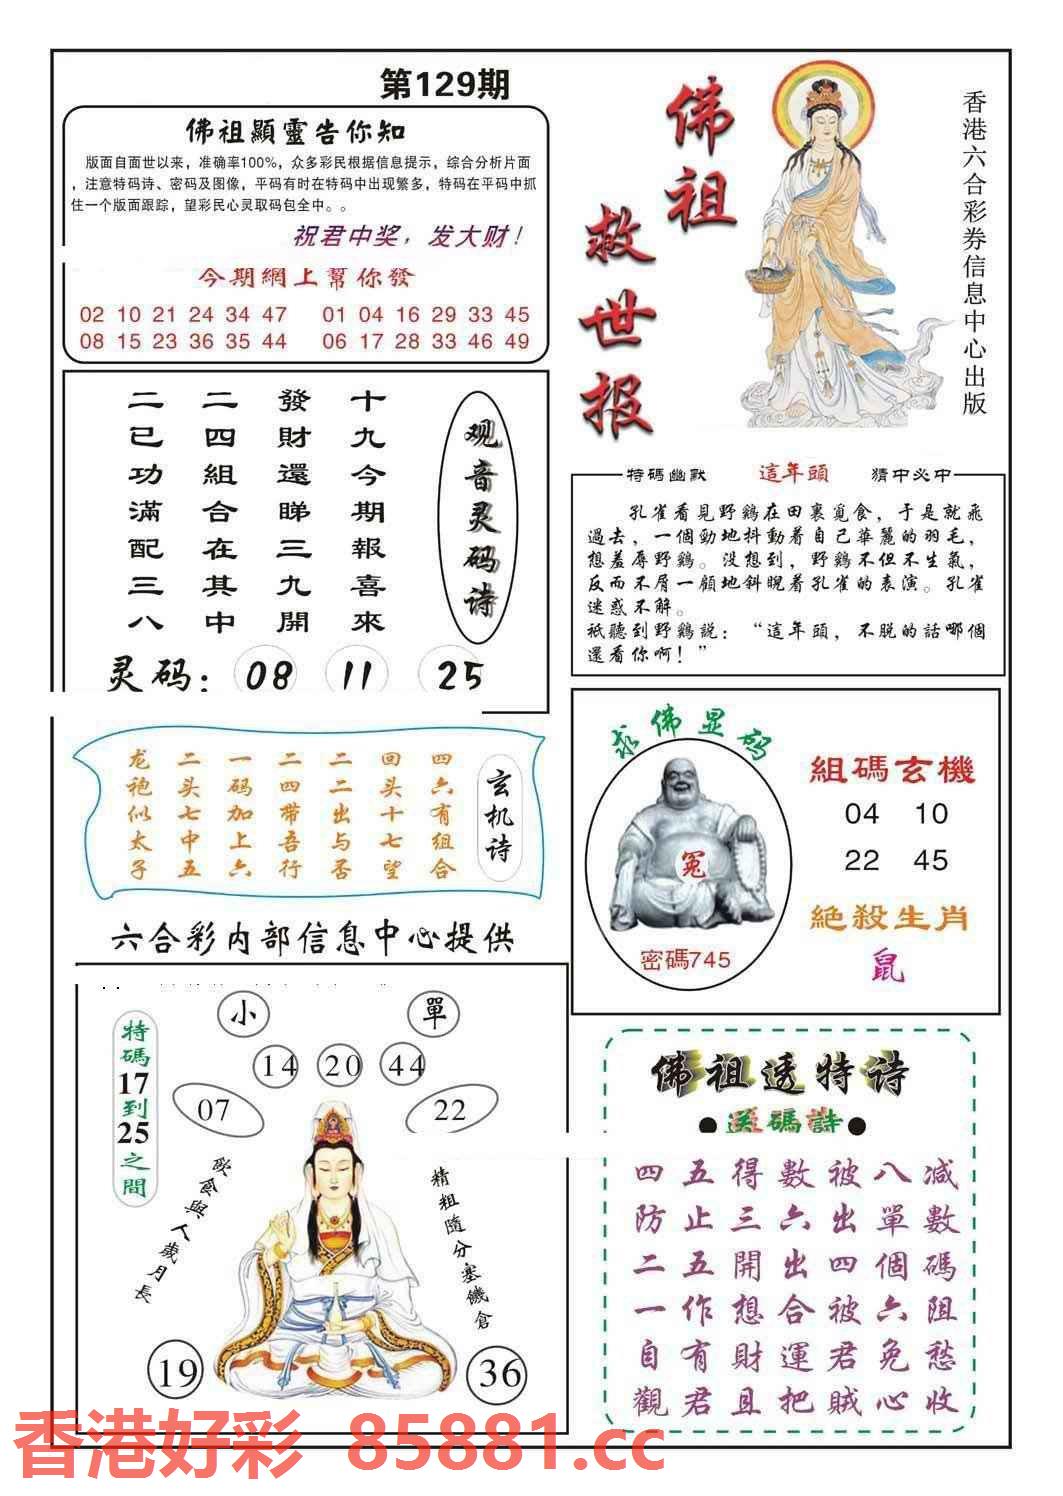 第129期
佛祖顯靈告你知
版面自面世以来，准确率100%，众多彩民根据信息提示，综合分析片面
，注意特码诗、密码及图像，平码有时在特码中出现繁多，特码在平码中抓
住一个版面跟踪，望彩民心灵取码包全中。。
祝君中奖，发大财！
今期網上幫你發
02 10 21 24 34 47 01 04 16 29 33 45
08 15 23 36 35 44 06 17 28 33 46 49
佛祖
救世报
香港六合彩券信息中心出版
观音灵码诗
十九今期報喜來
發財還睇三九開
二四組合在其中
二已功滿配三八
灵码：08 11 25
特碼幽默 這年頭 猜中必中
孔雀看見野鷄在田裏覓食，于是就飛
過去，一個勁地抖動着自己華麗的羽毛，
想羞辱野鷄。没想到，野鷄不但不生氣，
反而不屑一顧地斜睨着孔雀的表演。孔雀
迷惑不解。
衹聽到野鷄説：“這年頭，不脱的話哪個
還看你啊！”
玄机诗
四六有组合
回头十七望
二二出与否
二四带吾行
一码加上六
二头七中五
龙袍似太子
求佛显码
冤
密碼745
組碼玄機
04 10
22 45
絕殺生肖
鼠
六合彩内部信息中心提供
小 單
14 20 44
07 22
特碼17到25之間
飲食與人歲月長
精粗隨分塞饑倉
19 36
佛祖透特诗
●送碼詩●
四五得數被八减
防止三六出單數
二五開出四個碼
一作想合被六阻
自有財運君免愁
觀君且把賊心收
香港好彩 85881.cc